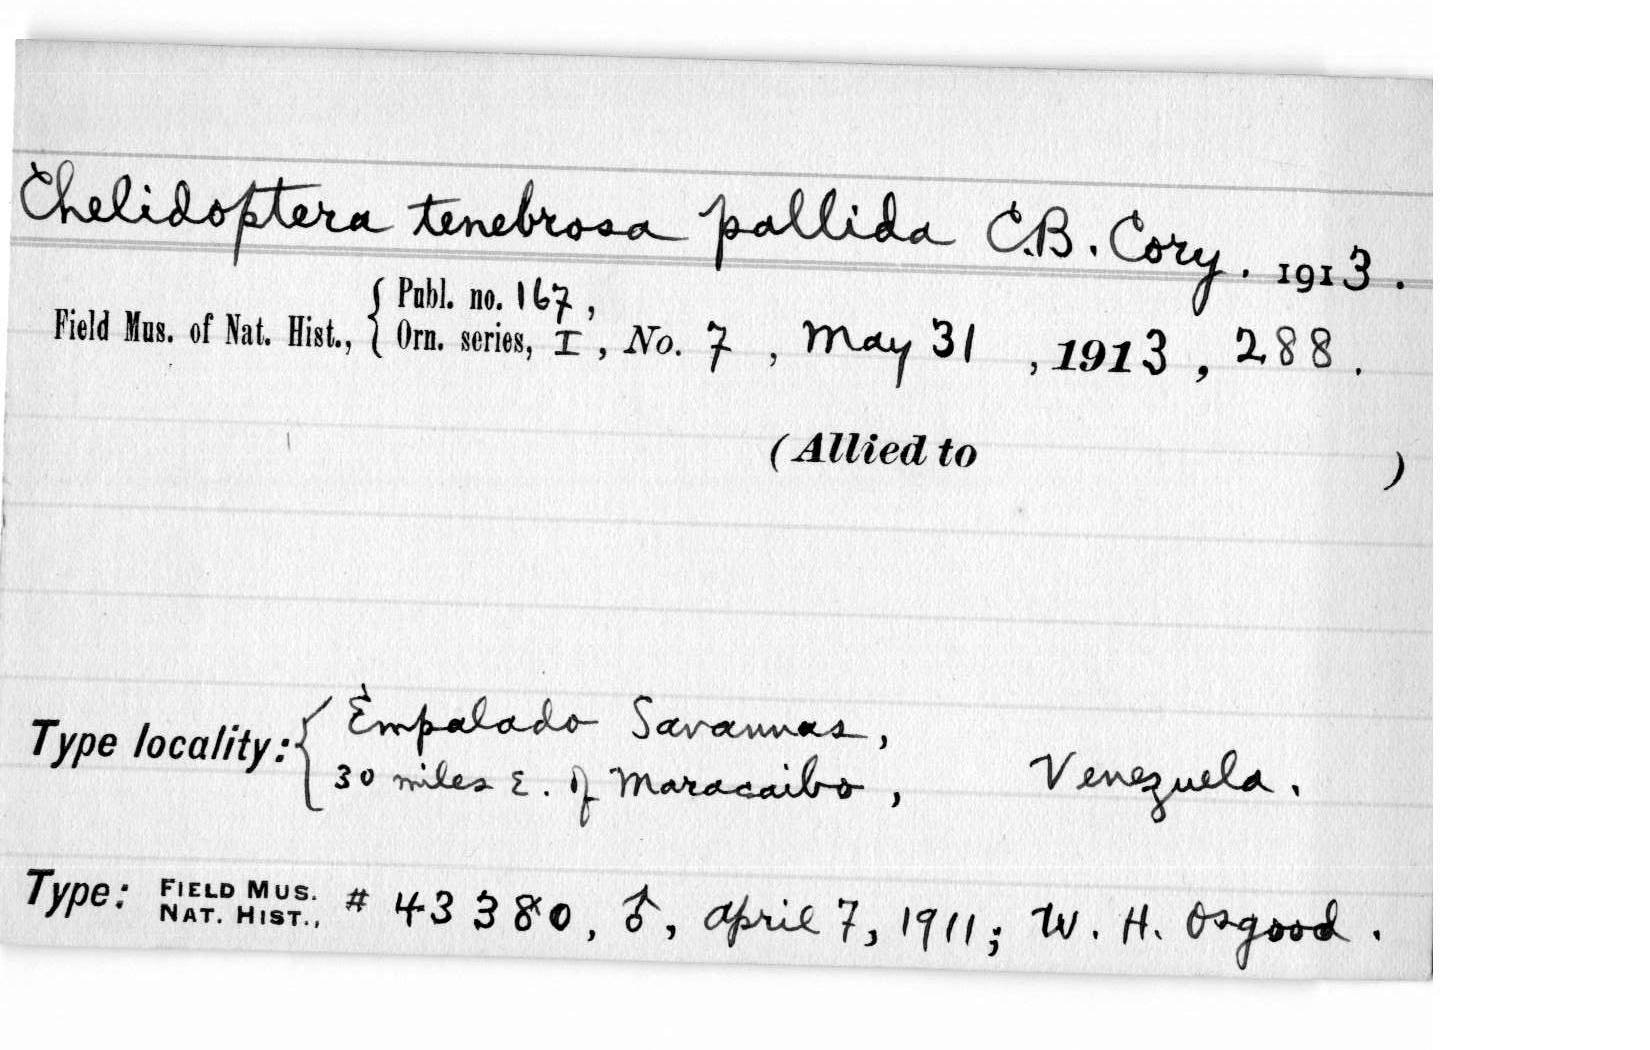 Chelidoptera tenebrosa pallida C.B. Cory. 1913.
Field Mus. of Nat. Hist., { Publ. no. 167,
Orn. series, I, No. 7, May 31, 1913, 288.
(Allied to )
Type locality: { Empalado Savannas,
30 miles E. of Maracaibo, Venezuela.
Type: FIELD MUS. NAT. HIST., # 43380, ♂, April 7, 1911; W. H. Osgood.